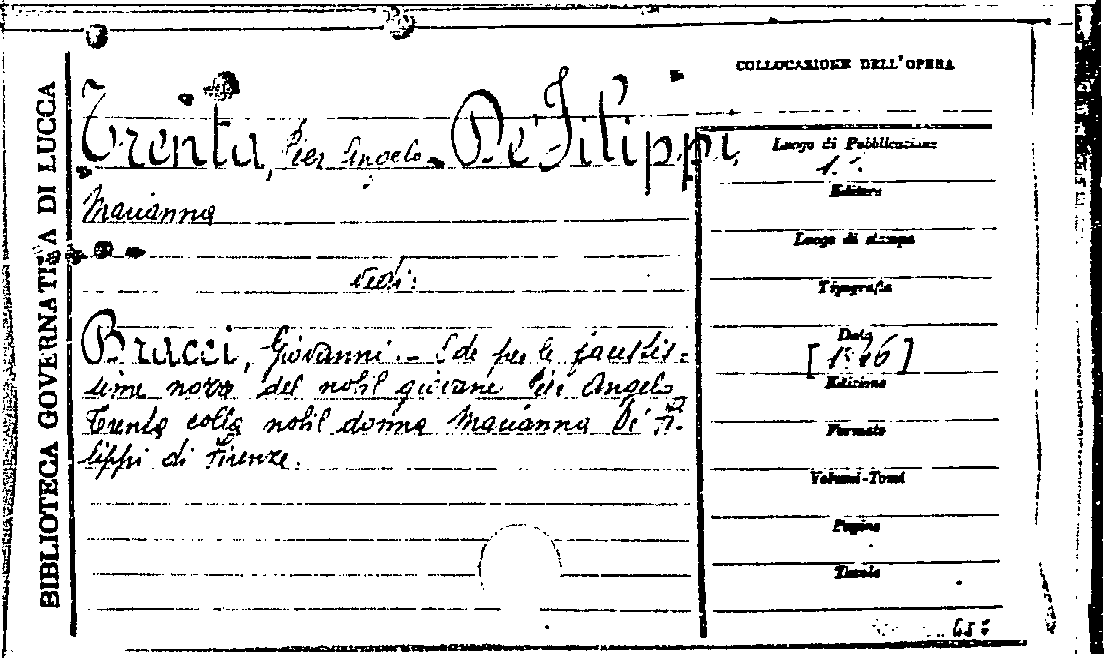 BIBLIOTECA GOVERNATIVA DI LUCCA
COLLOCAZIONE DELL'OPERA
Trenta, Pier Angelo - De' Filippi,
Marianna
vedi:
Bracci, Giovanni. - Ode per le faustis-
sime nozze del nobil giovane Pier Angelo
Trenta colla nobil donna Marianna De' Fi-
lippi di Firenze.
Luogo di Pubblicazione
Editore
Luogo di stampa
Tipografia
Data
Edizione
Formato
Volumi-Tomi
Pagine
Tavole